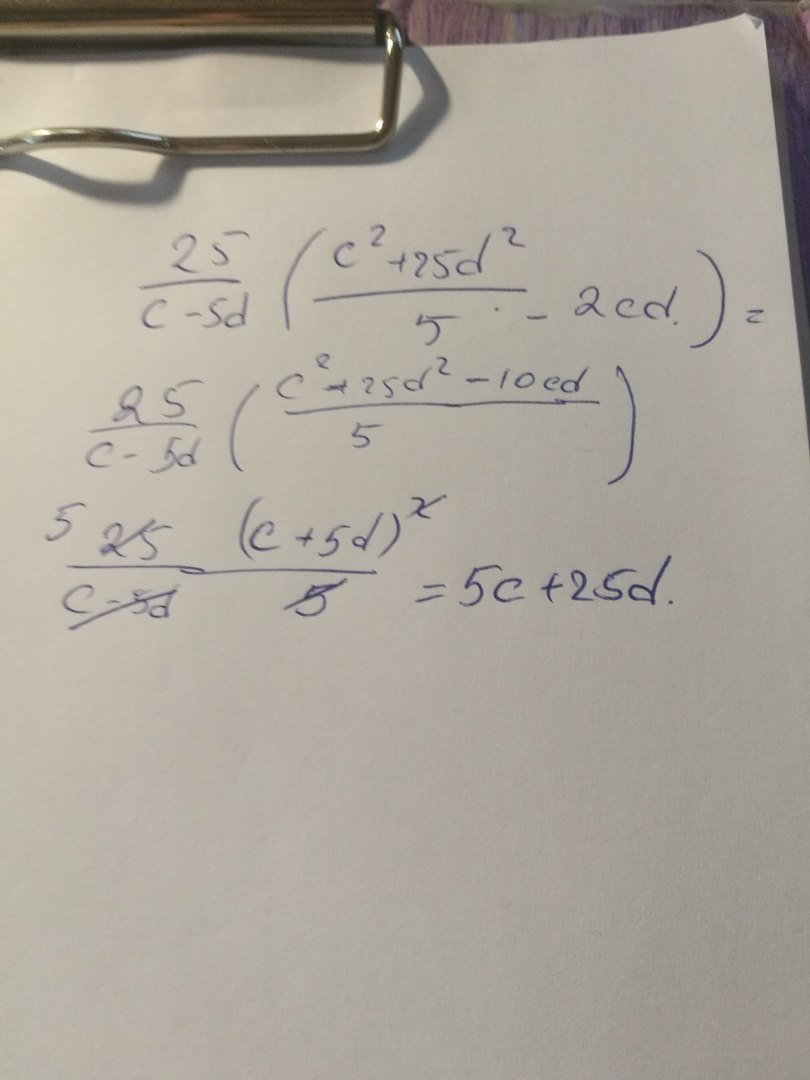 25/(c-5d) ((c²+25d²)/5 - 2cd.) =
25/(c-5d) ((c²+25d²-10cd)/5)
5 25/(c-5d) (c+5d)²/5 = 5c+25d.